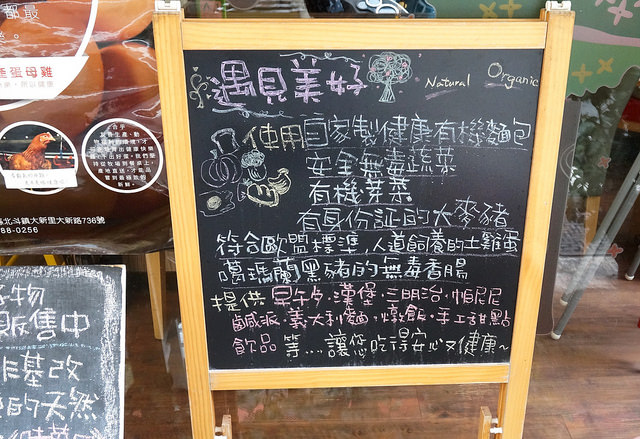 都最
遇見美好
Natural Organic
使用自家製健康有機麵包
安全無毒蔬菜
有機芽菜
有身份証的大麥豬
符合歐盟標準,人道飼養的土雞蛋
噶瑪蘭黑豬的無毒香腸
提供早午餐.漢堡.三明治.帕尼尼
鹹派.義大利麵.燉飯.手工甜點
飲品等....讓您吃得安心又健康~
蛋母雞
北斗鎮大新里大新路736號
88-0256
物
販售中
非基改
的天然